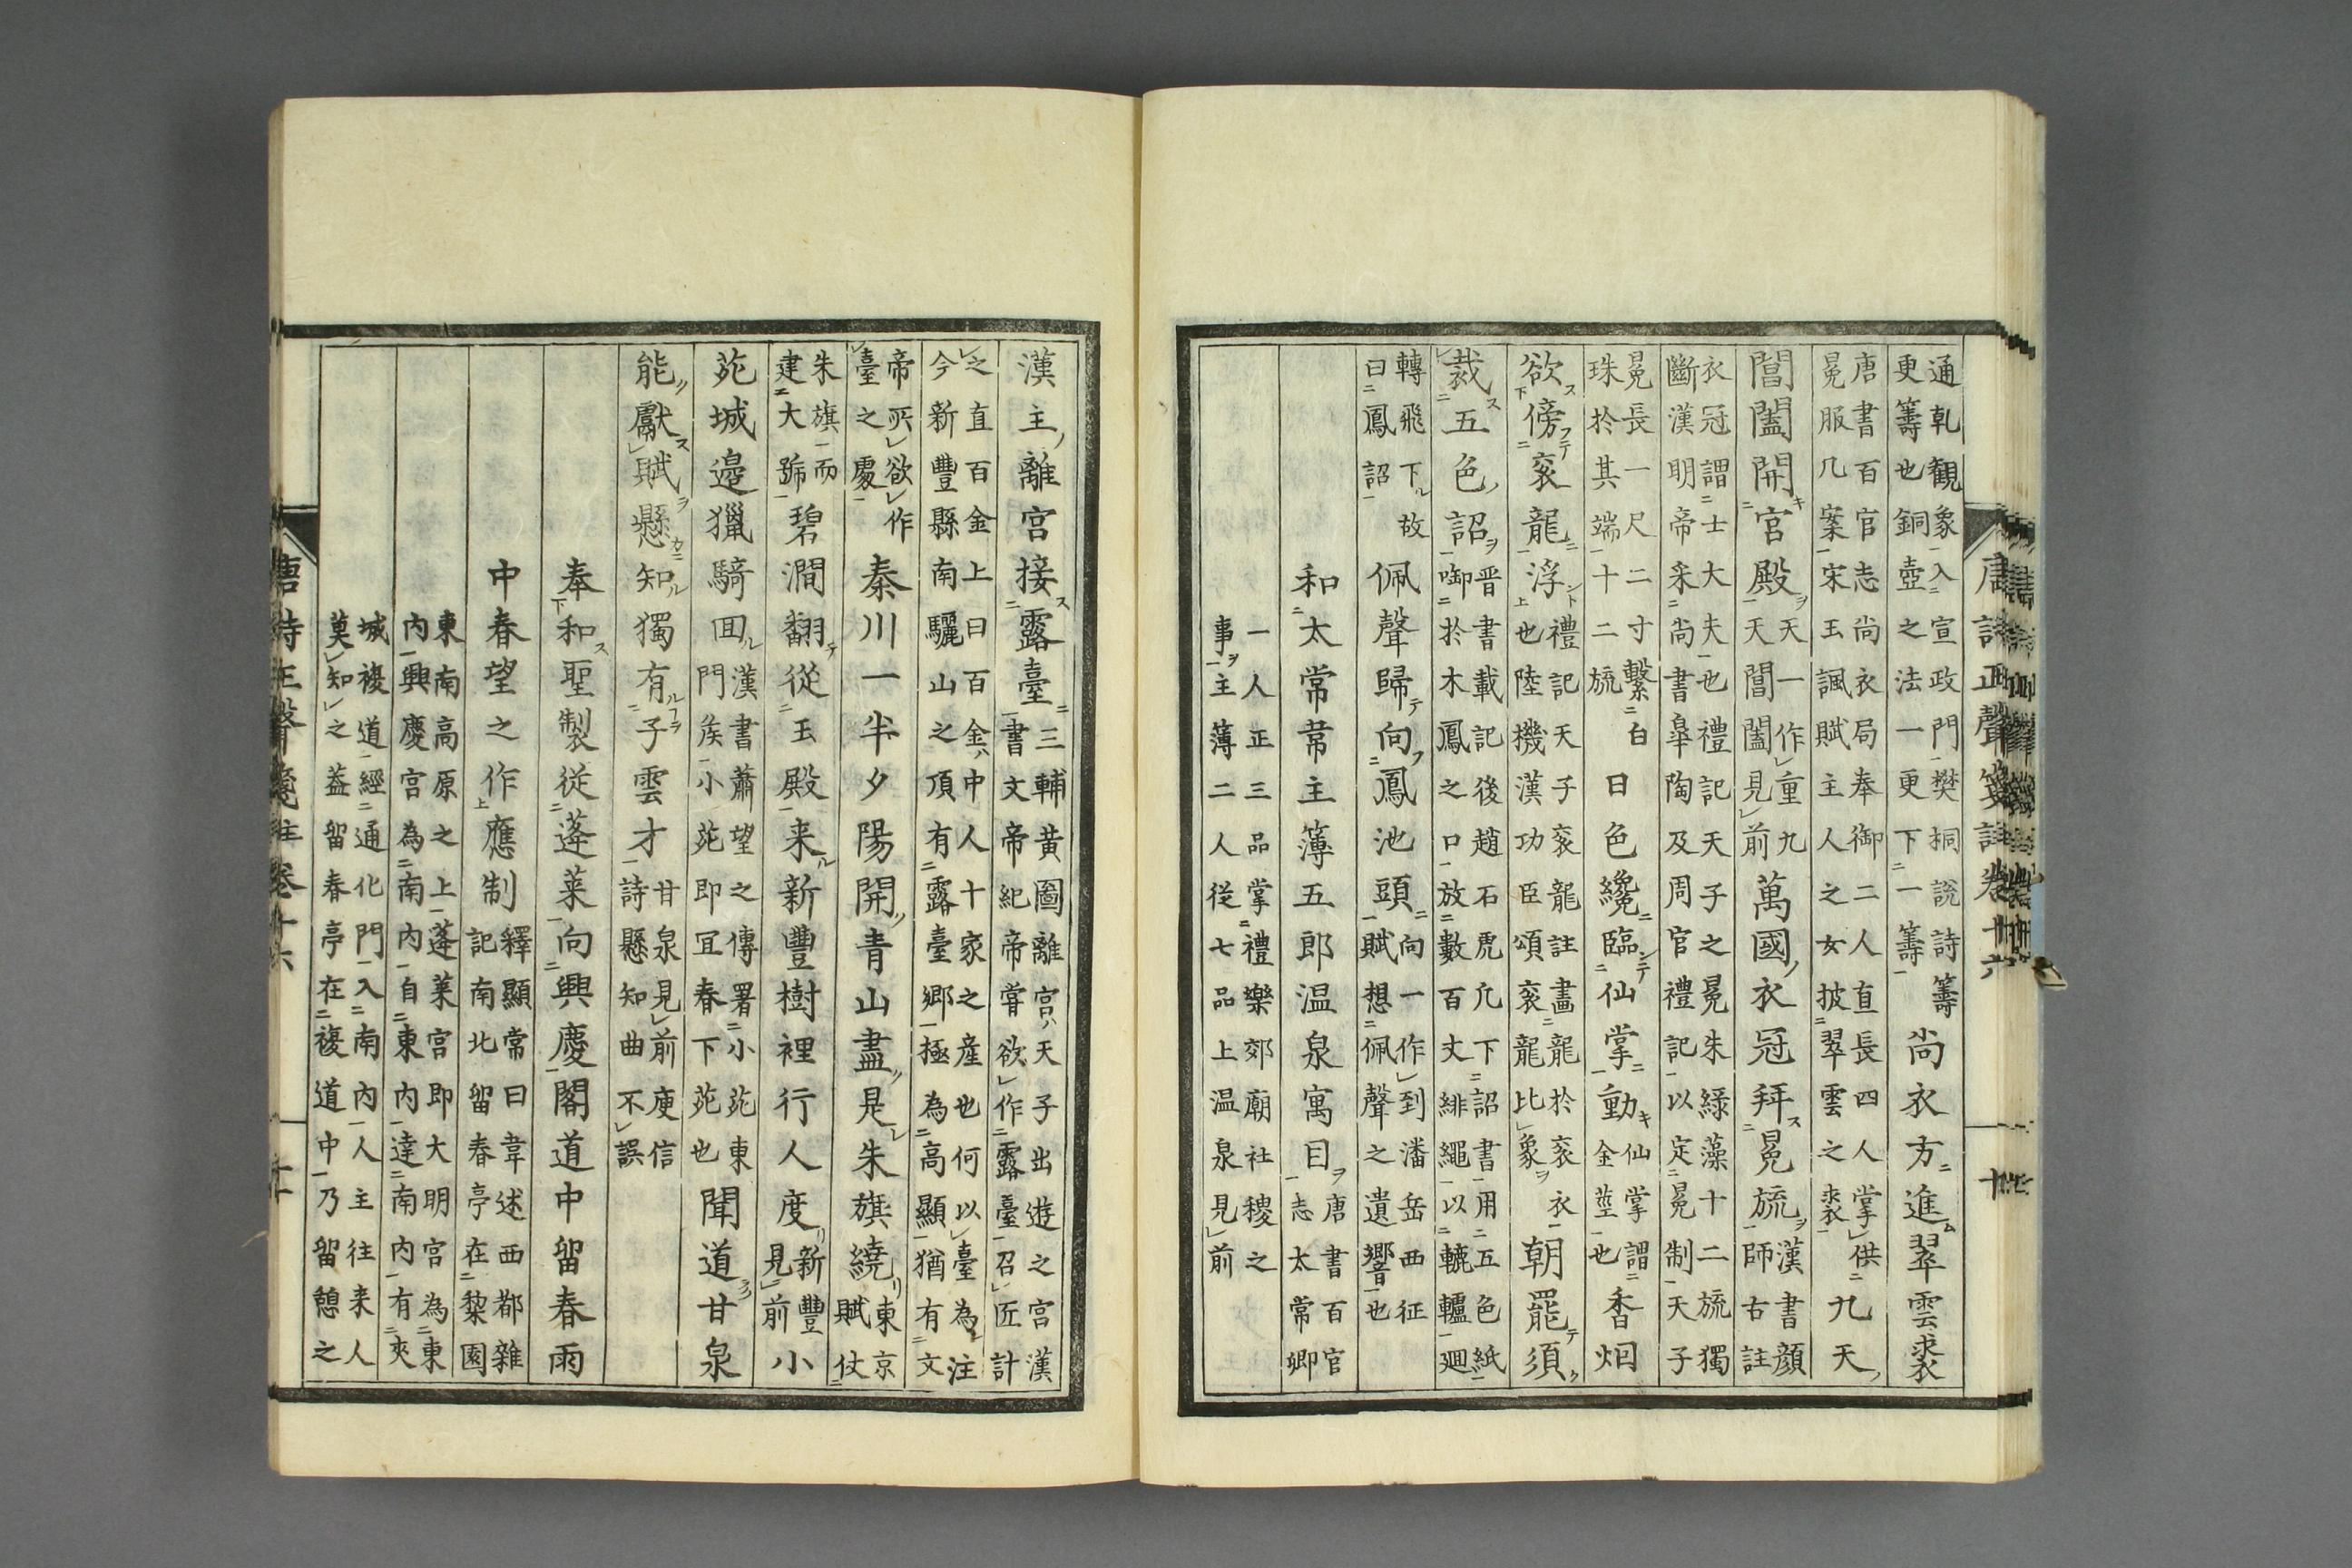 唐詩正聲箋註卷十六 十
通乾観象入宣政門樊桐説詩籌更籌也銅壺之法一更下一籌尚衣方進翠雲裘
唐書百官志尚衣局奉御二人直長四人掌供冕服几案宋玉諷賦主人之女披翠雲之裘九天
閶闔開宮殿天一作重九天閶闔見前萬國衣冠拜冕旒漢書顔師古註
衣冠謂士大夫也禮記天子之冕朱緑藻十二旒獨斷漢明帝采尚書皐陶及周官禮記以定冕制天子
冕長一尺二寸繫白珠於其端十二旒日色纔臨仙掌動仙掌謂金莖也香烟
欲傍袞龍浮禮記天子袞龍註畫龍於袞衣也陸機漢功臣頌袞龍比象朝罷須
裁五色詔晋書載記後趙石虎凡下詔書用五色紙啣於木鳳之口放數百丈緋繩以轆轤廻
轉飛下故曰鳳詔佩聲歸向鳳池頭向一作到潘岳西征賦想佩聲之遺響也
和太常韋主簿五郎温泉寓目唐書百官志太常卿
一人正三品掌禮樂郊廟社稷之事主薄二人從七品上温泉見前
漢主離宮接露臺三輔黄圖離宮天子出遊之宮漢書文帝紀帝嘗欲作露臺召匠計
之直百金上曰百金中人十家之産也何以臺為注今新豐縣南驪山之頂有露臺郷極為高顯猶有文
帝所欲作臺之處秦川一半夕陽開青山盡是朱旗繞東京賦仗
朱旗而建大號碧澗翻從玉殿来新豐樹裡行人度新豐見前小
苑城邉獵騎回漢書蕭望之傳署小苑東門矦小苑即冝春下苑也聞道甘泉
能獻賦懸知獨有子雲才甘泉見前庾信詩懸知曲不誤
奉和聖製従蓬莱向興慶閣道中留春雨
中春望之作應制釋顯常曰韋述西都雜記南北留春亭在黎園
東南高原之上蓬莱宮即大明宮為東内興慶宮為南内自東内達南内有夾
城複道經通化門入南内人主往来人莫知之葢留春亭在複道中乃留憩之
唐詩正聲箋註卷十六